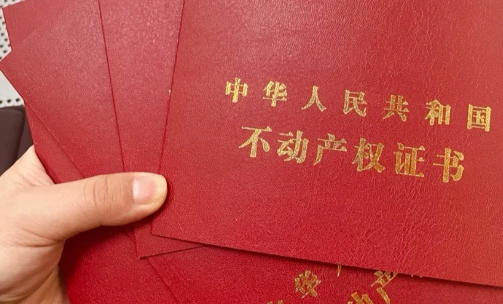 中华人民共和国
不动产权证书
动产